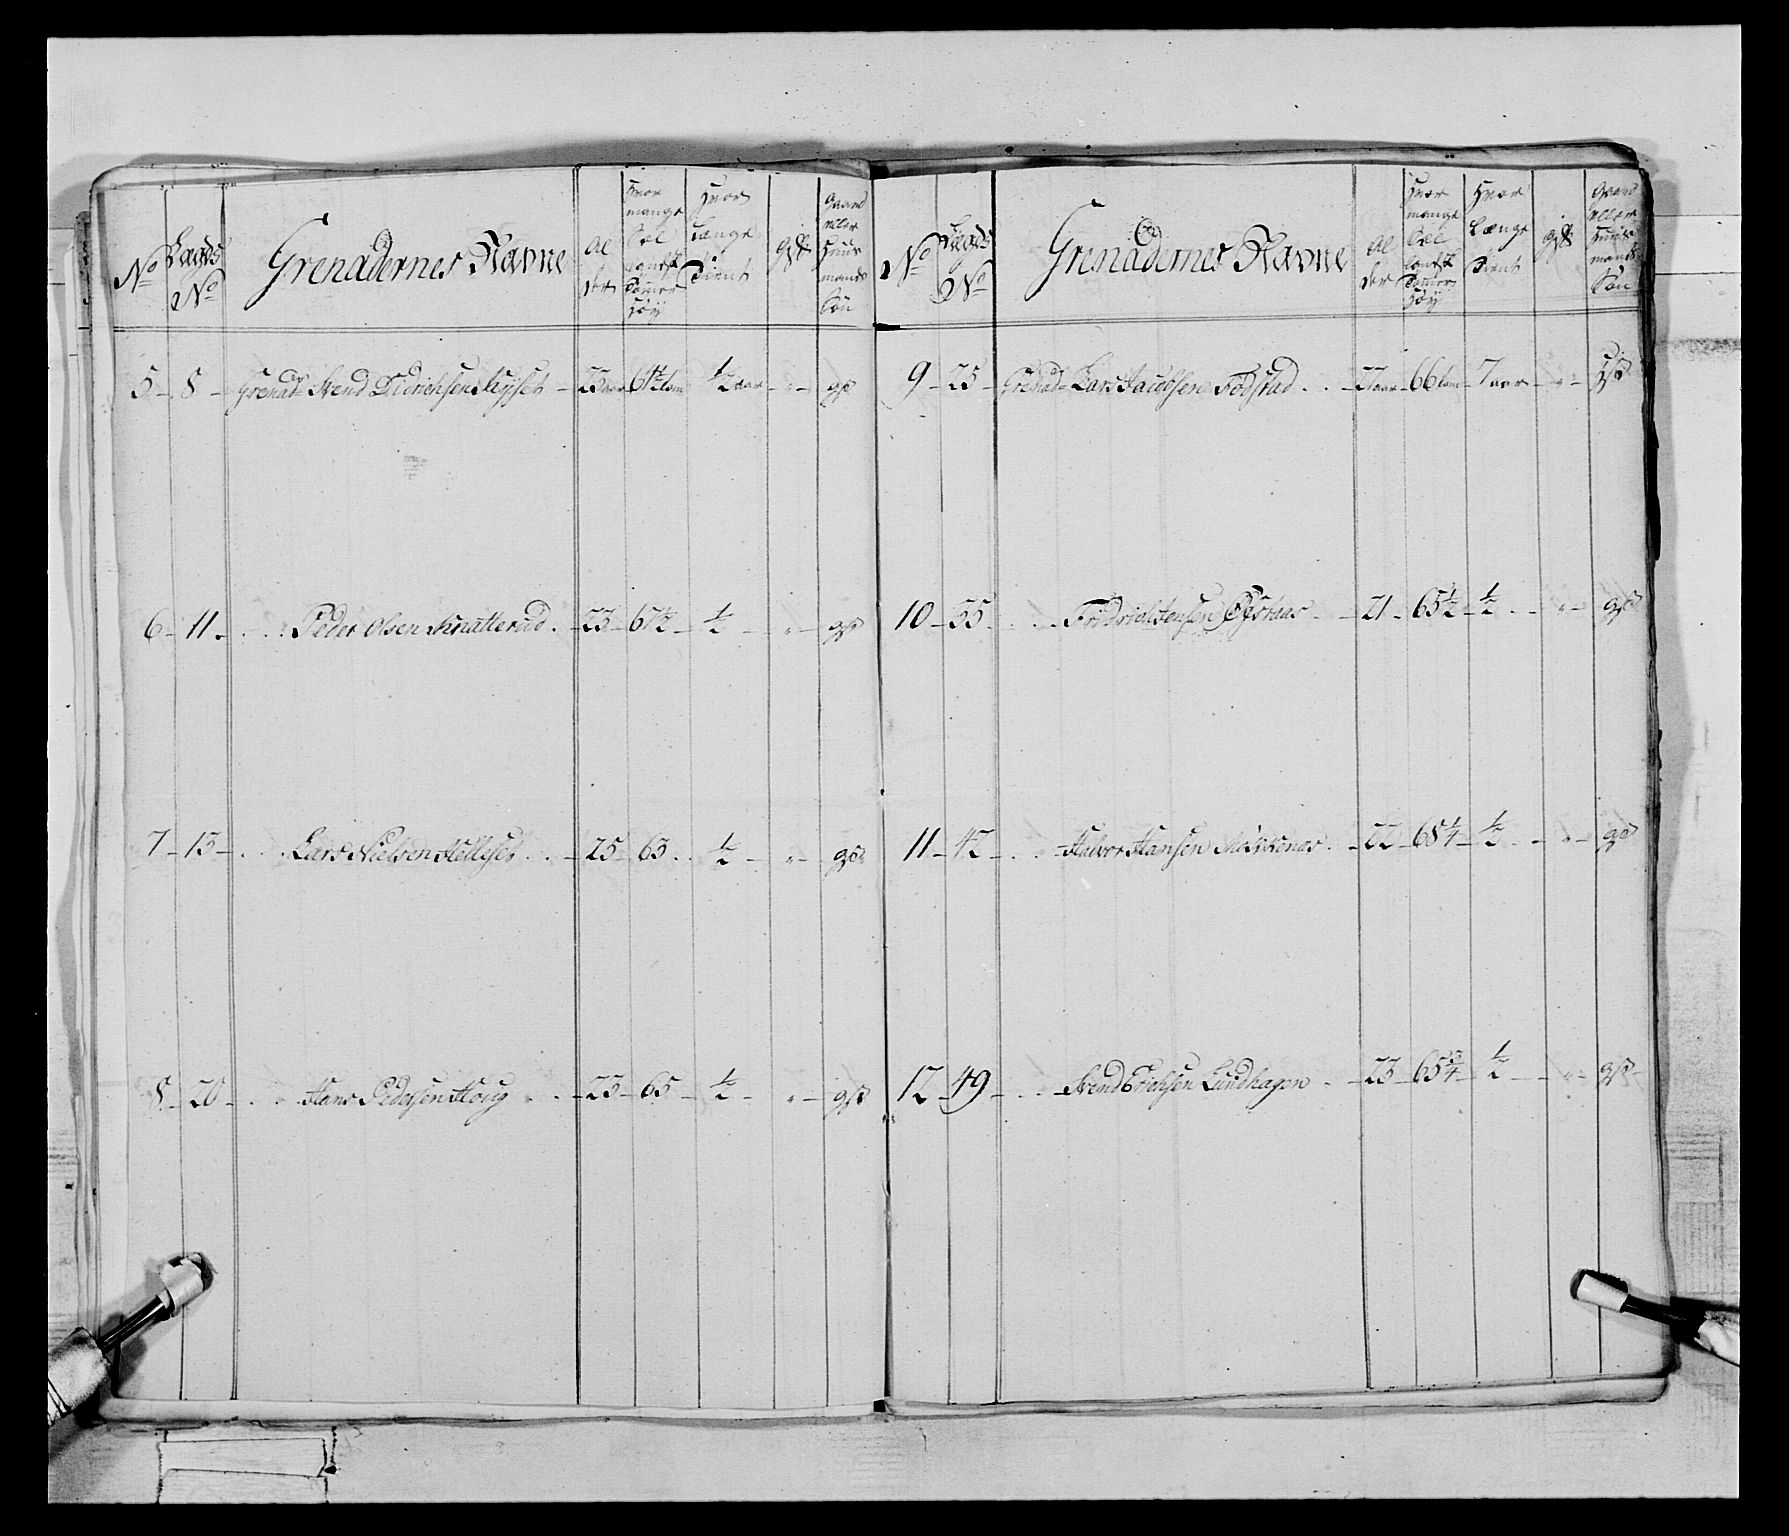 No
Lægds No
Grenadernes Navne
Al der
Hvor mange Sæl landsk Tomer Høÿ
Hvor Længe Tient
gift
Gaard eller Huus mands Søn
5 8 Grenad: Svend Didrichsen 23 aar 67½ tom ½ aar " gs
6 11 Peder Olsen Knatterud 23 67½ ½ " gs
7 13 Lars Nielsen 25 63 ½ " gs
8 20 Hans Pedersen Houg 23 65 ½ " gs
No
Lægds No
Grenadernes Navne
Al der
Hvor mange Sæl landsk Tomer Høÿ
Hvor Længe Tient
gift
Gaard eller Huus mands Søn
9 25 Grenad: Lars Jacobsen Fodstad 27 aar 66 tom 7 aar "
10 35 Fridrich Jensen 21 65½ ½ " gs
11 42 Halvor Hansen 22 68¼ ½ " gs
12 49 Svend Erichsen Lundhagen 23 65¾ ½ " gs